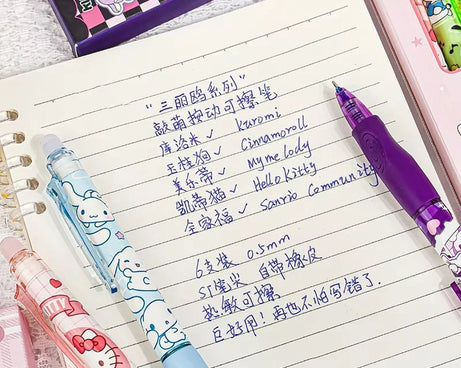 "三丽鸥系列"
敲萌按动可擦笔
库洛米✓ Kuromi
玉桂狗✓ Cinnamoroll
美乐蒂✓ Mymelody
凯蒂猫✓ HelloKitty
全家福✓ Sanrio Community
6支装 0.5mm
ST笔尖 自带橡皮
热敏可擦
巨好用!再也不怕写错了.